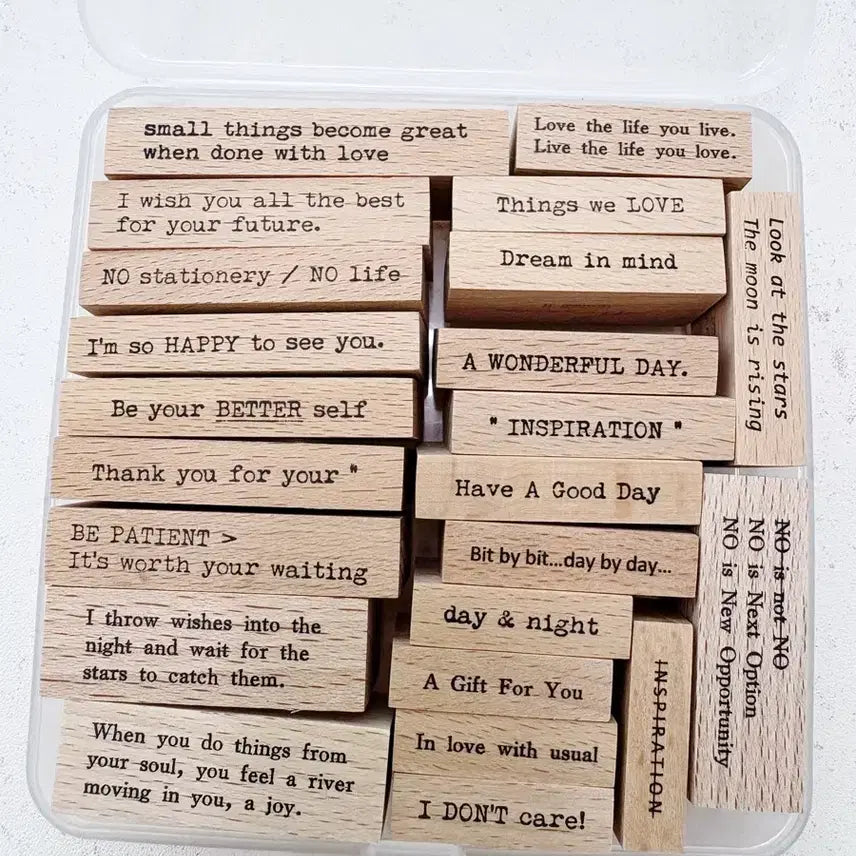 small things become great
when done with love
Love the life you live.
Live the life you love.
I wish you all the best
for your future.
Things we LOVE
NO stationery / NO life
Dream in mind
Look at the stars
The moon is rising
I'm so HAPPY to see you.
A WONDERFUL DAY.
Be your BETTER self
" INSPIRATION "
Thank you for your "
Have A Good Day
BE PATIENT >
It's worth your waiting
Bit by bit...day by day...
NO is not NO
NO is Next Option
NO is New Opportunity
I throw wishes into the
night and wait for the
stars to catch them.
day & night
A Gift For You
INSPIRATION
When you do things from
your soul, you feel a river
moving in you, a joy.
In love with usual
I DON'T care!